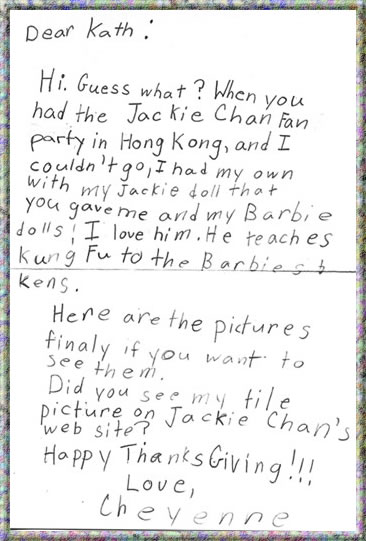 Dear Kath:
Hi. Guess what? When you
had the Jackie Chan Fan
party in Hong Kong, and I
couldn't go, I had my own
with my Jackie doll that
you gave me and my Barbie
dolls! I love him. He teaches
Kung Fu to the Barbies &
Kens.
Here are the pictures
finaly if you want to
see them.
Did you see my tile
picture on Jackie Chan's
web site?
Happy ThanksGiving!!!
Love,
Cheyenne